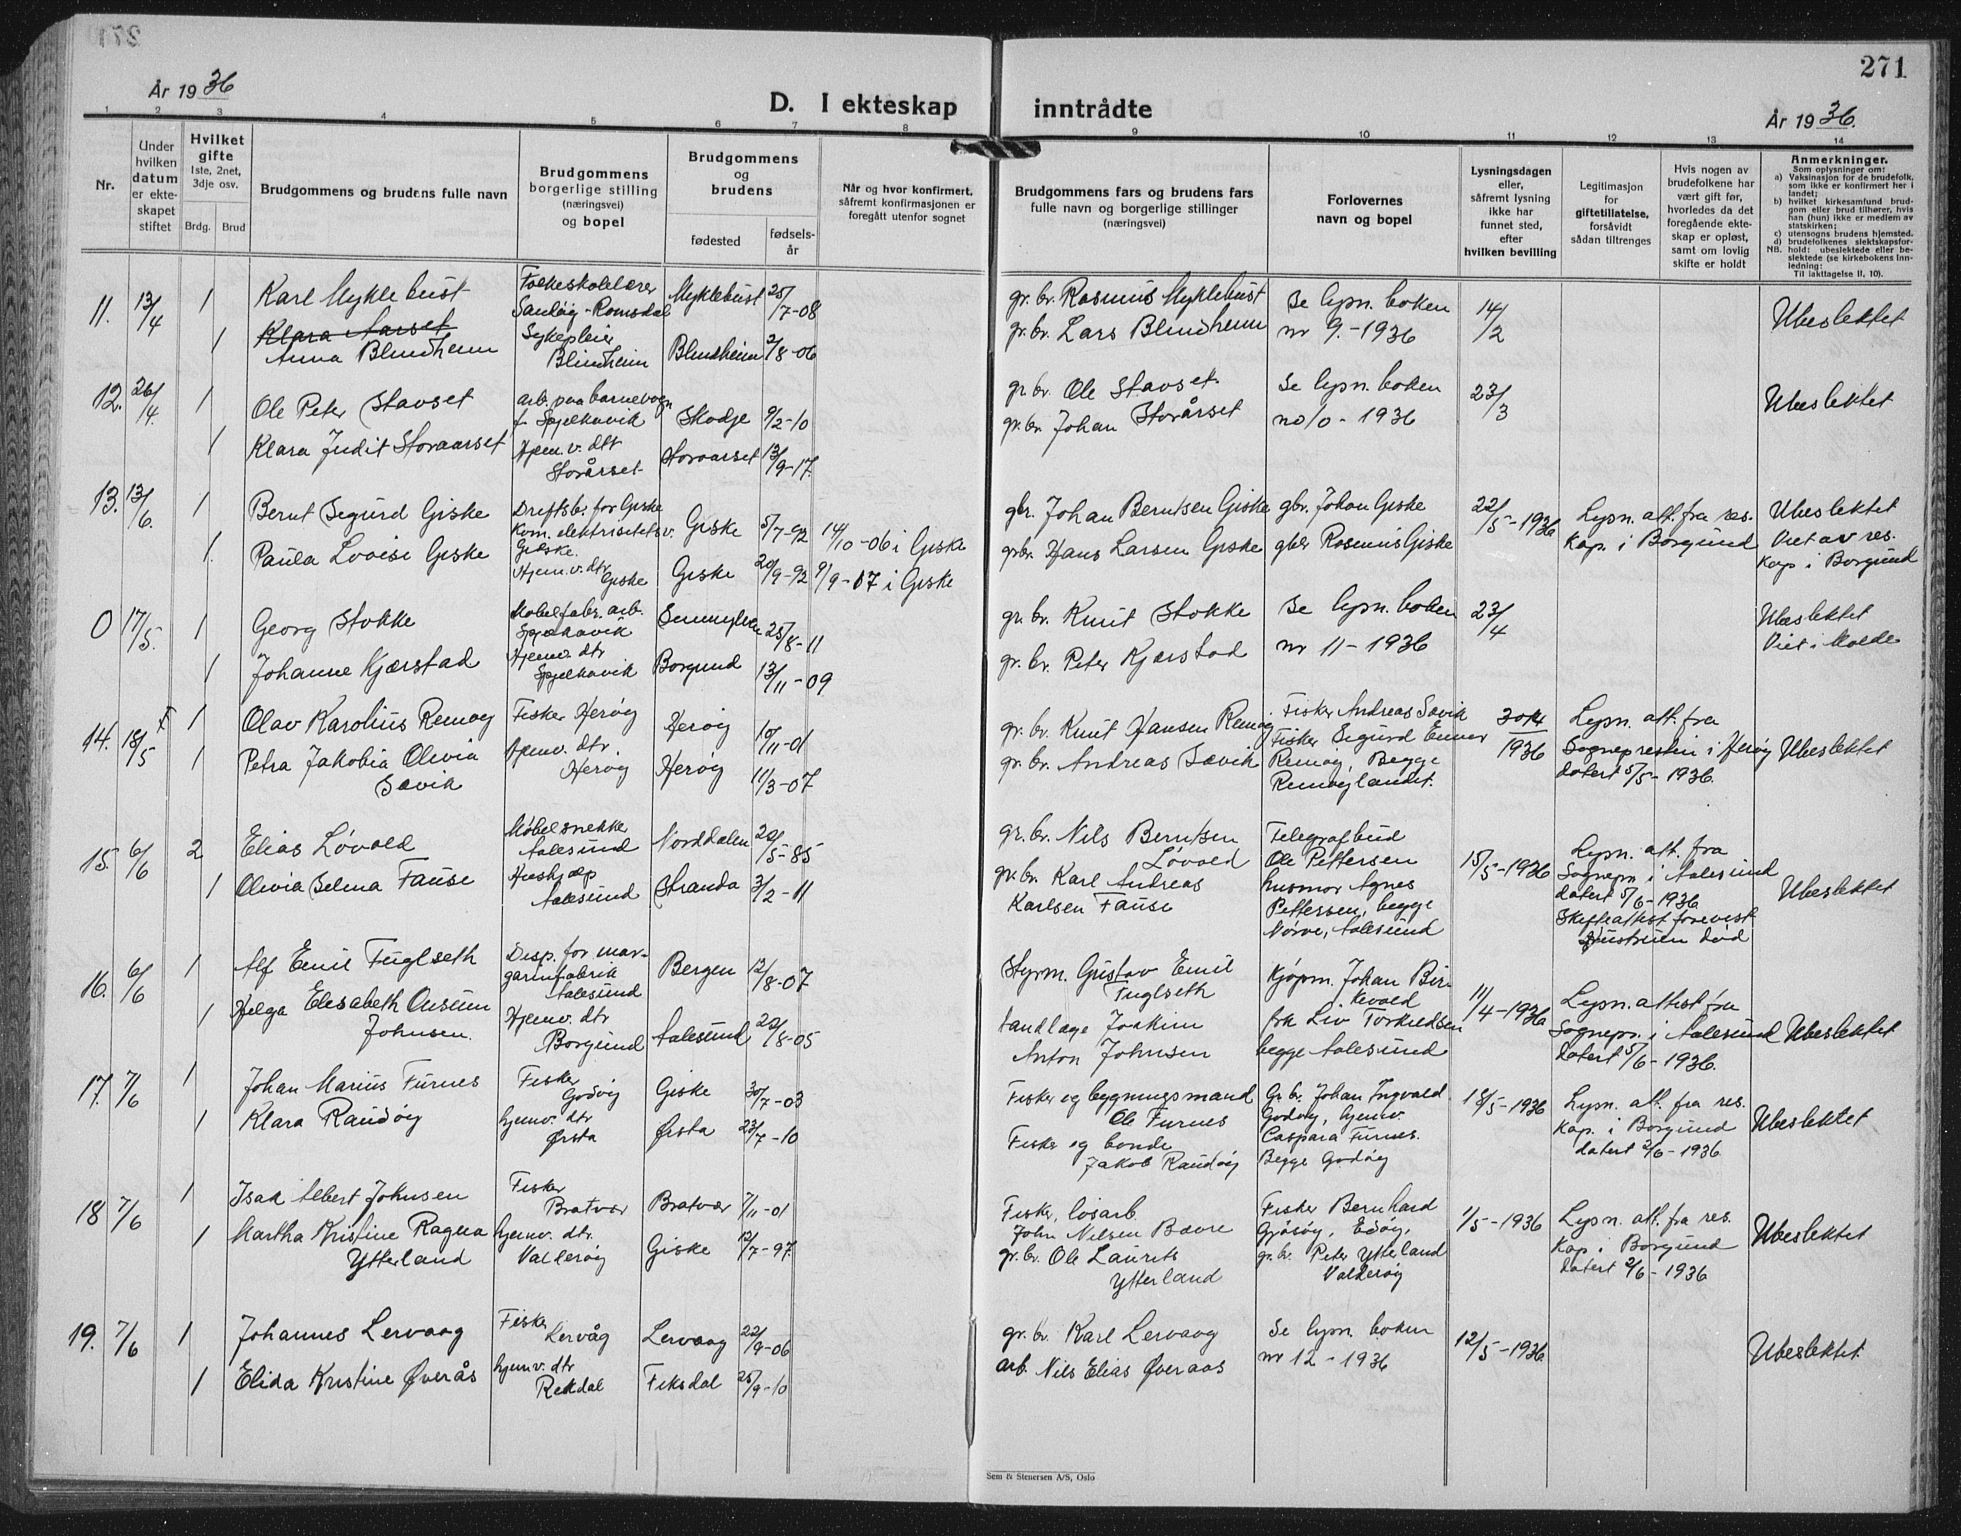 271
År 1936
D. I ekteskap inntrådte
År 1936.
1 2 3 4 5 6 7 8 9 10 11 12 13 14
Nr.
Under hvilken datum er ekteskapet stiftet
Hvilket gifte
1ste, 2net, 3dje osv.
Brdg. Brud
Brudgommens og brudens fulle navn
Brudgommens borgerlige stilling (næringsvei) og bopel
Brudgommens og brudens
fødested
fødselsår
Når og hvor konfirmert, såfremt konfirmasjonen er foregått utenfor sognet
Brudgommens fars og brudens fars fulle navn og borgerlige stillinger (næringsvei)
Forlovernes navn og bopel
Lysningsdagen eller, såfremt lysning ikke har funnet sted, efter hvilken bevilling
Legitimasjon for giftetillatelse, forsåvidt sådan tiltrenges
Hvis nogen av brudefolkene har vært gift før, hvorledes da det foregående ekteskap er opløst, samt om lovlig skifte er holdt
Anmerkninger.
Som oplysninger om:
a) Vaksinasjon for de brudefolk, som ikke er konfirmert her i landet;
b) hvilket kirkesamfund brudgom eller brud tilhører, hvis han (hun) ikke er medlem av statskirken;
c) utensogns brudens hjemsted.
d) brudefolkenes slektskapsforhold: ubeslektede eller beslektede (se kirkebokens Innledning:
NB. Til iakttagelse II, 10).
11. 13/4 1 Karl Myklebust Folkeskolelærer Sandøy-Romsdal Myklebust 25/7-08 gr. br. Rasmus Myklebust Se lysn. boken 14/2 Ubeslektet
1 Klara Aarset Anna Blindheim Sykepleier Blindheim Blindheim 2/8-06 gr. br. Lars Blindheim nr 9.-1936
12. 26/4 1 Ole Peter Stavset arb. paa barnevogn f. Spjelkavik Skodje 9/2-10 gr br. Ole Stavset Se lysn. boken 23/3 Ubeslektet
1 Klara Judit Storaarset Hjem. v. dtr Storårset Storaarset 13/9-17. gr. br. Johan Storårset no 10-1936
13. 13/6. 1 Bernt Segurd Giske Driftsb. for Giske Kom. elektrisitetsv. Giske. Giske 5/7-92 14/10-06 i Giske gbr. Johan Berntsen Giske gbr. Johan Giske 22/5-1936 Lysn. att. fra res. Kap. i Borgund Ubeslektet
1. Paula Lovise Giske Hjem. v. dtr Giske Giske 20/9-92 9/9-07 i Giske grbr. Hans Larsen Giske gbr Rasmus Giske Viet av res. Kap i Borgund
0 17/5. 1 Georg Stokke Møbelfabr. arb. Spjelkavik Sunnylven 25/8-11 gr. br. Knut Stokke Se lysn. boken 23/4 Ubeslektet
1 Johanne Kjærstad Hjemv. dtr Spjelkavik Borgund 13/11-09 gr. br. Peter Kjærstad nr 11-1936 Viet i Molde
14. 18/5 1 Olav Karolius Remøy Fisker Herøy Herøy 10/11-01 gr. br. Knut Hansen Remøy Fisker Andreas Sævik 30/4 1936 Lysn. att. fra Sognepresten i Herøy datert 5/5-1936. Ubeslektet
1 Petra Jakobia Olivia Sævik Hjemv. dtr. Herøy Herøy 11/3-07 gr. br. Andreas Sævik Fisker Sigurd Remøy, Begge Remøylandet.
15. 6/6 2 Elias Løvold Møbelsnekke Aalesund Norddalen 20/5-85 gr. br. Nils Berntsen Løvold Telegrafbud Ole Pettersen 15/5-1936 Lysn. att. fra Sognepr. i Aalesund datert 5/6-1936 Ubeslektet
1 Olivia Selma Fause Hushjælp Aalesund Stranda 3/2-11 gr. br. Karl Andreas Karlsen Fause husmor Agnes Pettersen, begge Nørve, Aalesund Skifteattest forevist Hustruen død
16. 6/6 1 Alf Emil Fuglseth Disp. for margarinfabrik Aalesund Bergen 12/8-07 Styrm. Gustav Emil Fuglseth Kjøpm. Johan Birkevold 11/4-1936 Lysn. attest fra Sognepr. i Aalesund datert 5/6-1936. Ubeslektet
1 Helga Elisabeth Onsum Johnsen. Hjemv. dtr Borgund Aalesund 22/8-05 tandlæge Joakim Anton Johnsen frk Liv Torkildsen begge Aalesund
17. 7/6 1 Johan Marius Furnes Fisker Godøy Giske 30/7-03 Fisker og bygningsmand Ole Furnes Gr. br. Johan Ingvald Godøy, hjemv. 18/5-1936 Lysn. att. fra res. Kap. i Borgund datert 2/6-1936 Ubeslektet
1 Klara Raudøy hjemv. dtr Ørsta Ørsta 23/7-10 Fisker og bonde Jakob Raudøy Caspara Furnes. Begge Godøy
18 7/6 1 Isak Albert Johnsen Fisker Bratvær Bratvær 7/11-01 Fisker, løsarb. John Nilsen Bævre Fisker Bernhard Gjøsøy, Edøy, 1/5-1936 Lysn. att. fra res. Kap. i Borgund datert 2/6-1936 Ubeslektet
1 Martha Kristine Ragna Ytterland hjemv. dtr. Valderøy Giske 12/7-97 gr. br. Ole Laurits Ytterland gr. br. Peter Ytterland Valderøy
19. 7/6 1 Johannes Lervaag Fisker Lervåg Lervaag 22/9-06 gr. br. Karl Lervaag Se lysn. boken 12/5-1936 Ubeslektet
1 Elida Kristine Øverås hjemv. dtr Rekdal Fiksdal 25/9-10 arb. Nils Elias Øveraas nr 12-1936
Sem & Stenersen A/S, Oslo